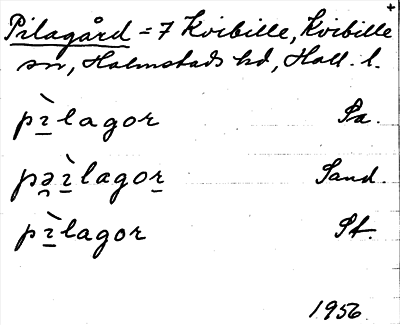 +
Pilagård = 7 Kvibille, Kvibille
sn, Halmstads hd, Hall. l.
pì̱lagor Sa.
pə̯̱ì̱lagoṟ Sand.
pì̱lagor St.
1956